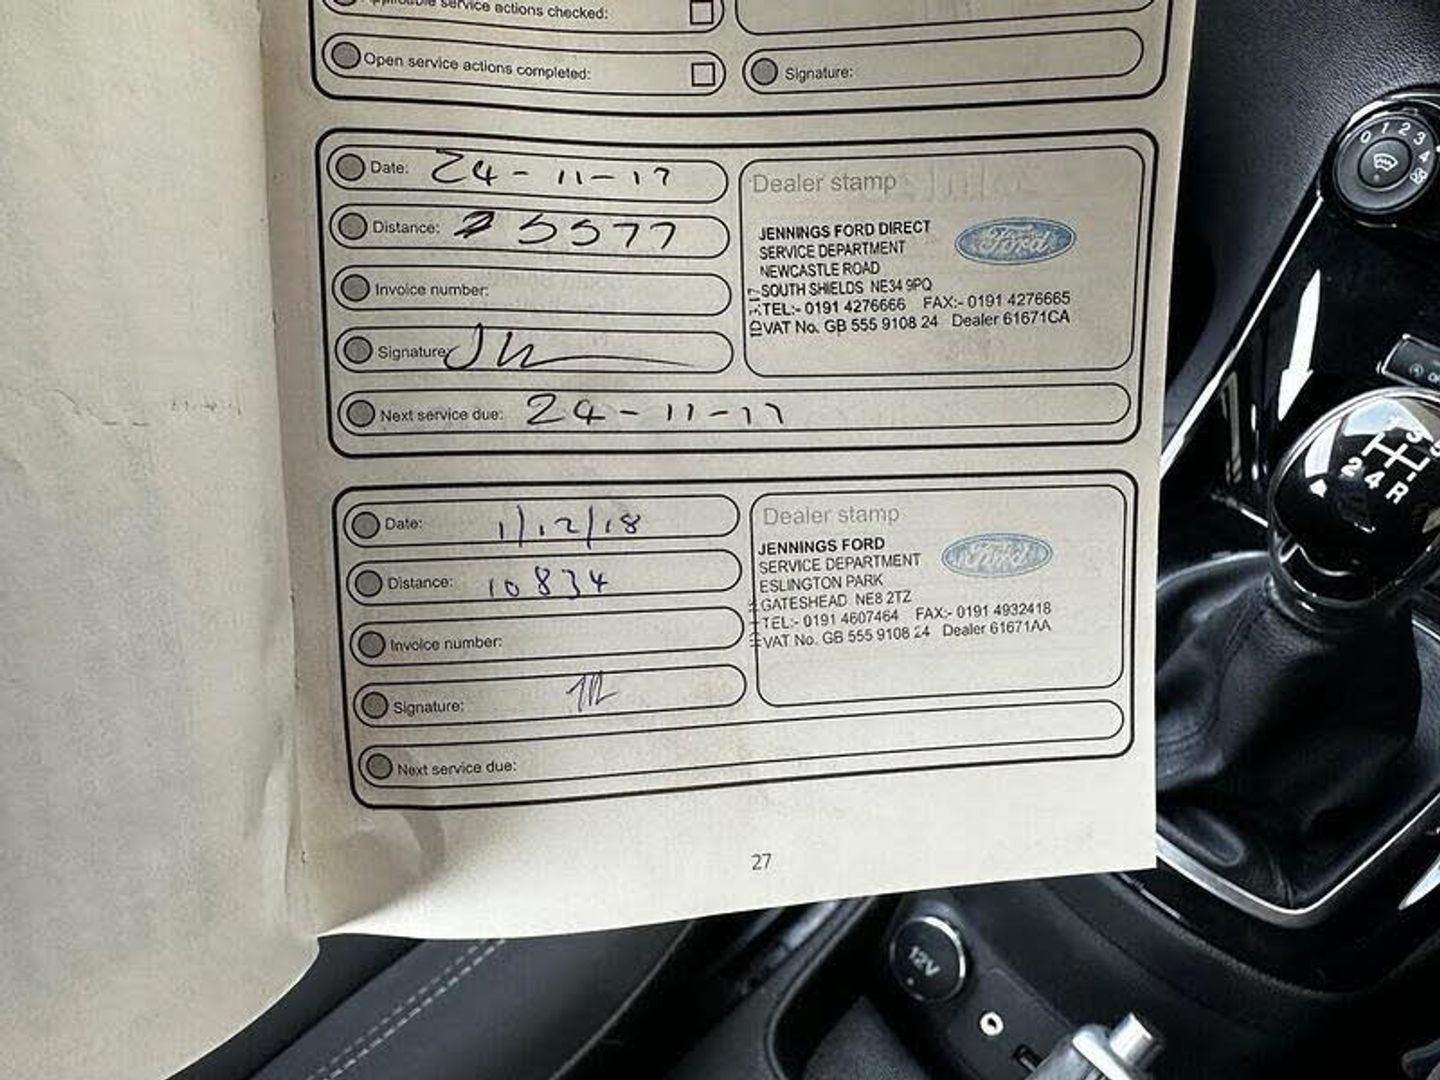 Applicable service actions checked:
Open service actions completed:
Signature:
Date: 24-11-17
Distance: 5577
Invoice number:
Signature
Next service due: 24-11-17
Dealer stamp
JENNINGS FORD DIRECT
SERVICE DEPARTMENT
NEWCASTLE ROAD
SOUTH SHIELDS NE34 9PQ
TEL:- 0191 4276666 FAX:- 0191 4276665
VAT No. GB 555 9108 24 Dealer 61671CA
Ford
Date: 1/12/18
Distance: 10834
Invoice number:
Signature:
Next service due:
Dealer stamp
JENNINGS FORD
SERVICE DEPARTMENT
ESLINGTON PARK
GATESHEAD NE8 2TZ
TEL:- 0191 4607464 FAX:- 0191 4932418
VAT No. GB 555 9108 24 Dealer 61671AA
Ford
27
0 1 2 3 4
3 5
2 4 R
12V